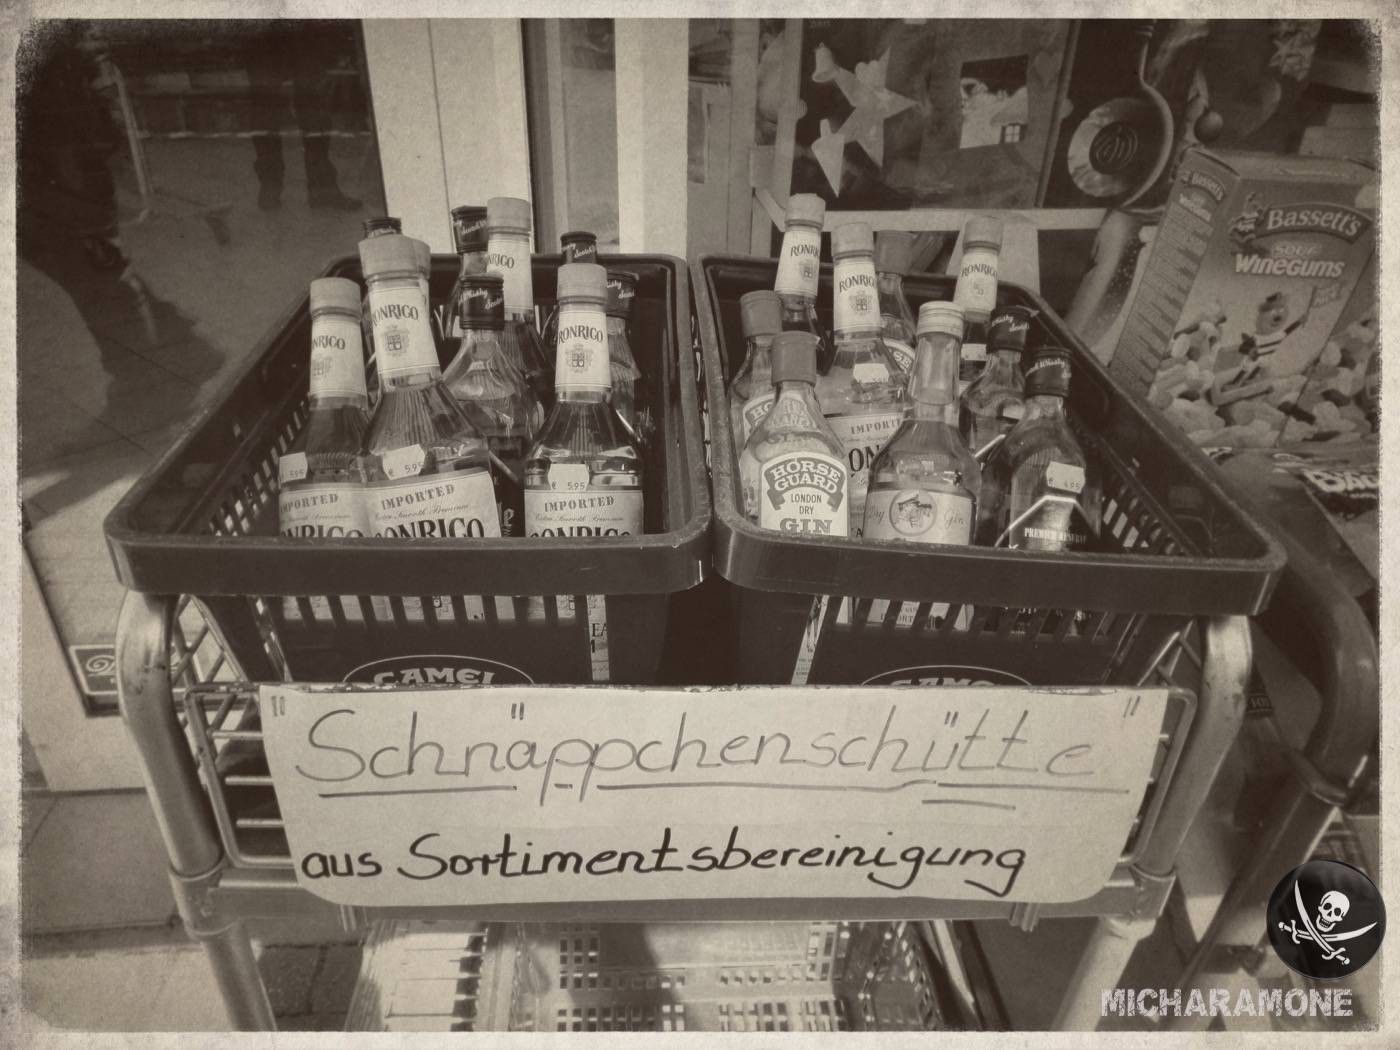 Bassett's
Sour
WineGums
RONRICO
RONRICO
RONRICO
RONRICO
RONRICO
RONRICO
RONRICO
€ 5.95
€ 5.95
€ 5.95
€ 4.95
IMPORTED
RONRICO
IMPORTED
RONRICO
IMPORTED
RONRICO
IMPORTED
HORSE
GUARD
LONDON
DRY
GIN
Dry Gin
PREMIER RESERVE
CAMEL
CAMEL
"Schnäppchenschütte"
aus Sortimentsbereinigung
MICHARAMONE